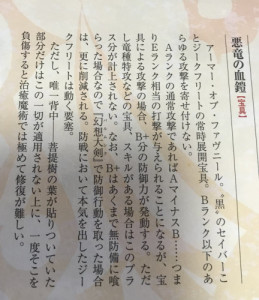 悪竜の血鎧【宝具】
アーマー・オブ・ファヴニール。“黒”のセイバーこ
とジークフリートの常時展開宝具。Bランク以下のあ
らゆる攻撃を寄せ付けない。
Aランクの通常攻撃であればAマイナスB……つま
りEランク相当の打撃が与えられることになるが、宝
具による攻撃の場合、B+分の防御力が発動する。ただ
し竜種特攻などの宝具、スキルがある場合はこのプラ
ス分が計上されない。なお、B+はあくまで無防備に喰
らった場合なので『幻想大剣』で防御行動を取った場合
は、更に削減される。防戦において本気を出したジー
クフリートは動く要塞。
ただし、唯一背中――菩提樹の葉が貼りついていた
部分だけはこの一切が適用されない上に、一度そこを
負傷すると治癒魔術では極めて修復が難しい。